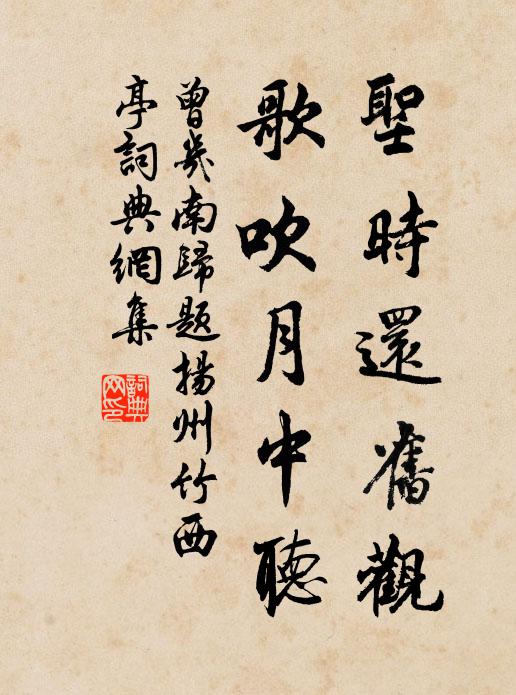 聖時還舊觀
歌吹月中聽
曾幾南歸題揚州竹西
亭詞典網集
詞典
网印